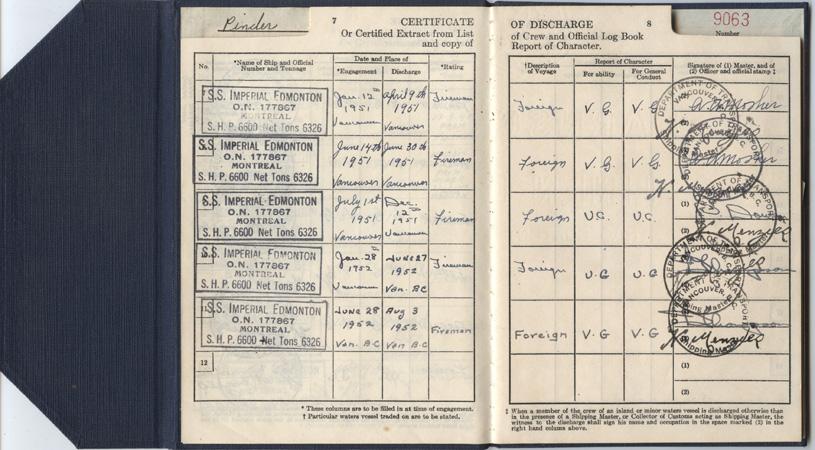 Pinder
7
CERTIFICATE
Or Certified Extract from List
and copy of
No.
*Name of Ship and Official
Number and Tonnage
Date and Place of
*Engagement
Discharge
*Rating
S.S. IMPERIAL EDMONTON
O.N. 177867
MONTREAL
S. H. P. 6600 Net Tons 6326
Jan. 12th
1951
Vancouver
April 9th
1951
Vancouver
Fireman
S.S. IMPERIAL EDMONTON
O.N. 177867
MONTREAL
S. H. P. 6600 Net Tons 6326
June 14th
1951
Vancouver
June 30th
1951
Vancouver
Fireman
S.S. IMPERIAL EDMONTON
O.N. 177867
MONTREAL
S. H. P. 6600 Net Tons 6326
July 1st
1951
Vancouver
Dec.
12
1951
Vancouver
Fireman
S.S. IMPERIAL EDMONTON
O.N. 177867
MONTREAL
S. H. P. 6600 Net Tons 6326
Jan. 28
1952
Vancouver
June 27
1952
Van. BC
Fireman
S.S. IMPERIAL EDMONTON
O.N. 177867
MONTREAL
S. H. P. 6600 Net Tons 6326
June 28
1952
Van. B.C
Aug 3
1952
Van. B.C
Fireman
12
* These columns are to be filled in at time of engagement.
† Particular waters vessel traded on are to be stated.
OF DISCHARGE
8
of Crew and Official Log Book
Report of Character.
9063
Number
†Description
of Voyage
Report of Character
For ability
For General
Conduct
Signature of (1) Master, and of
(2) Officer and official stamp ‡
Foreign V. G. V. G.
Foreign V. G. V. G.
Foreign V.G. V.G.
Foreign V.G V.G
Foreign V.G V.G
Mosher
Mosher
(1)
(2)
Menzell
Menzell
(1)
(2)
‡ When a member of the crew of an inland or minor waters vessel is discharged otherwise than
in the presence of a Shipping Master, or Collector of Customs acting as Shipping Master, the
witness to the discharge shall sign his name and occupation in the space marked (2) in the
right hand column above.